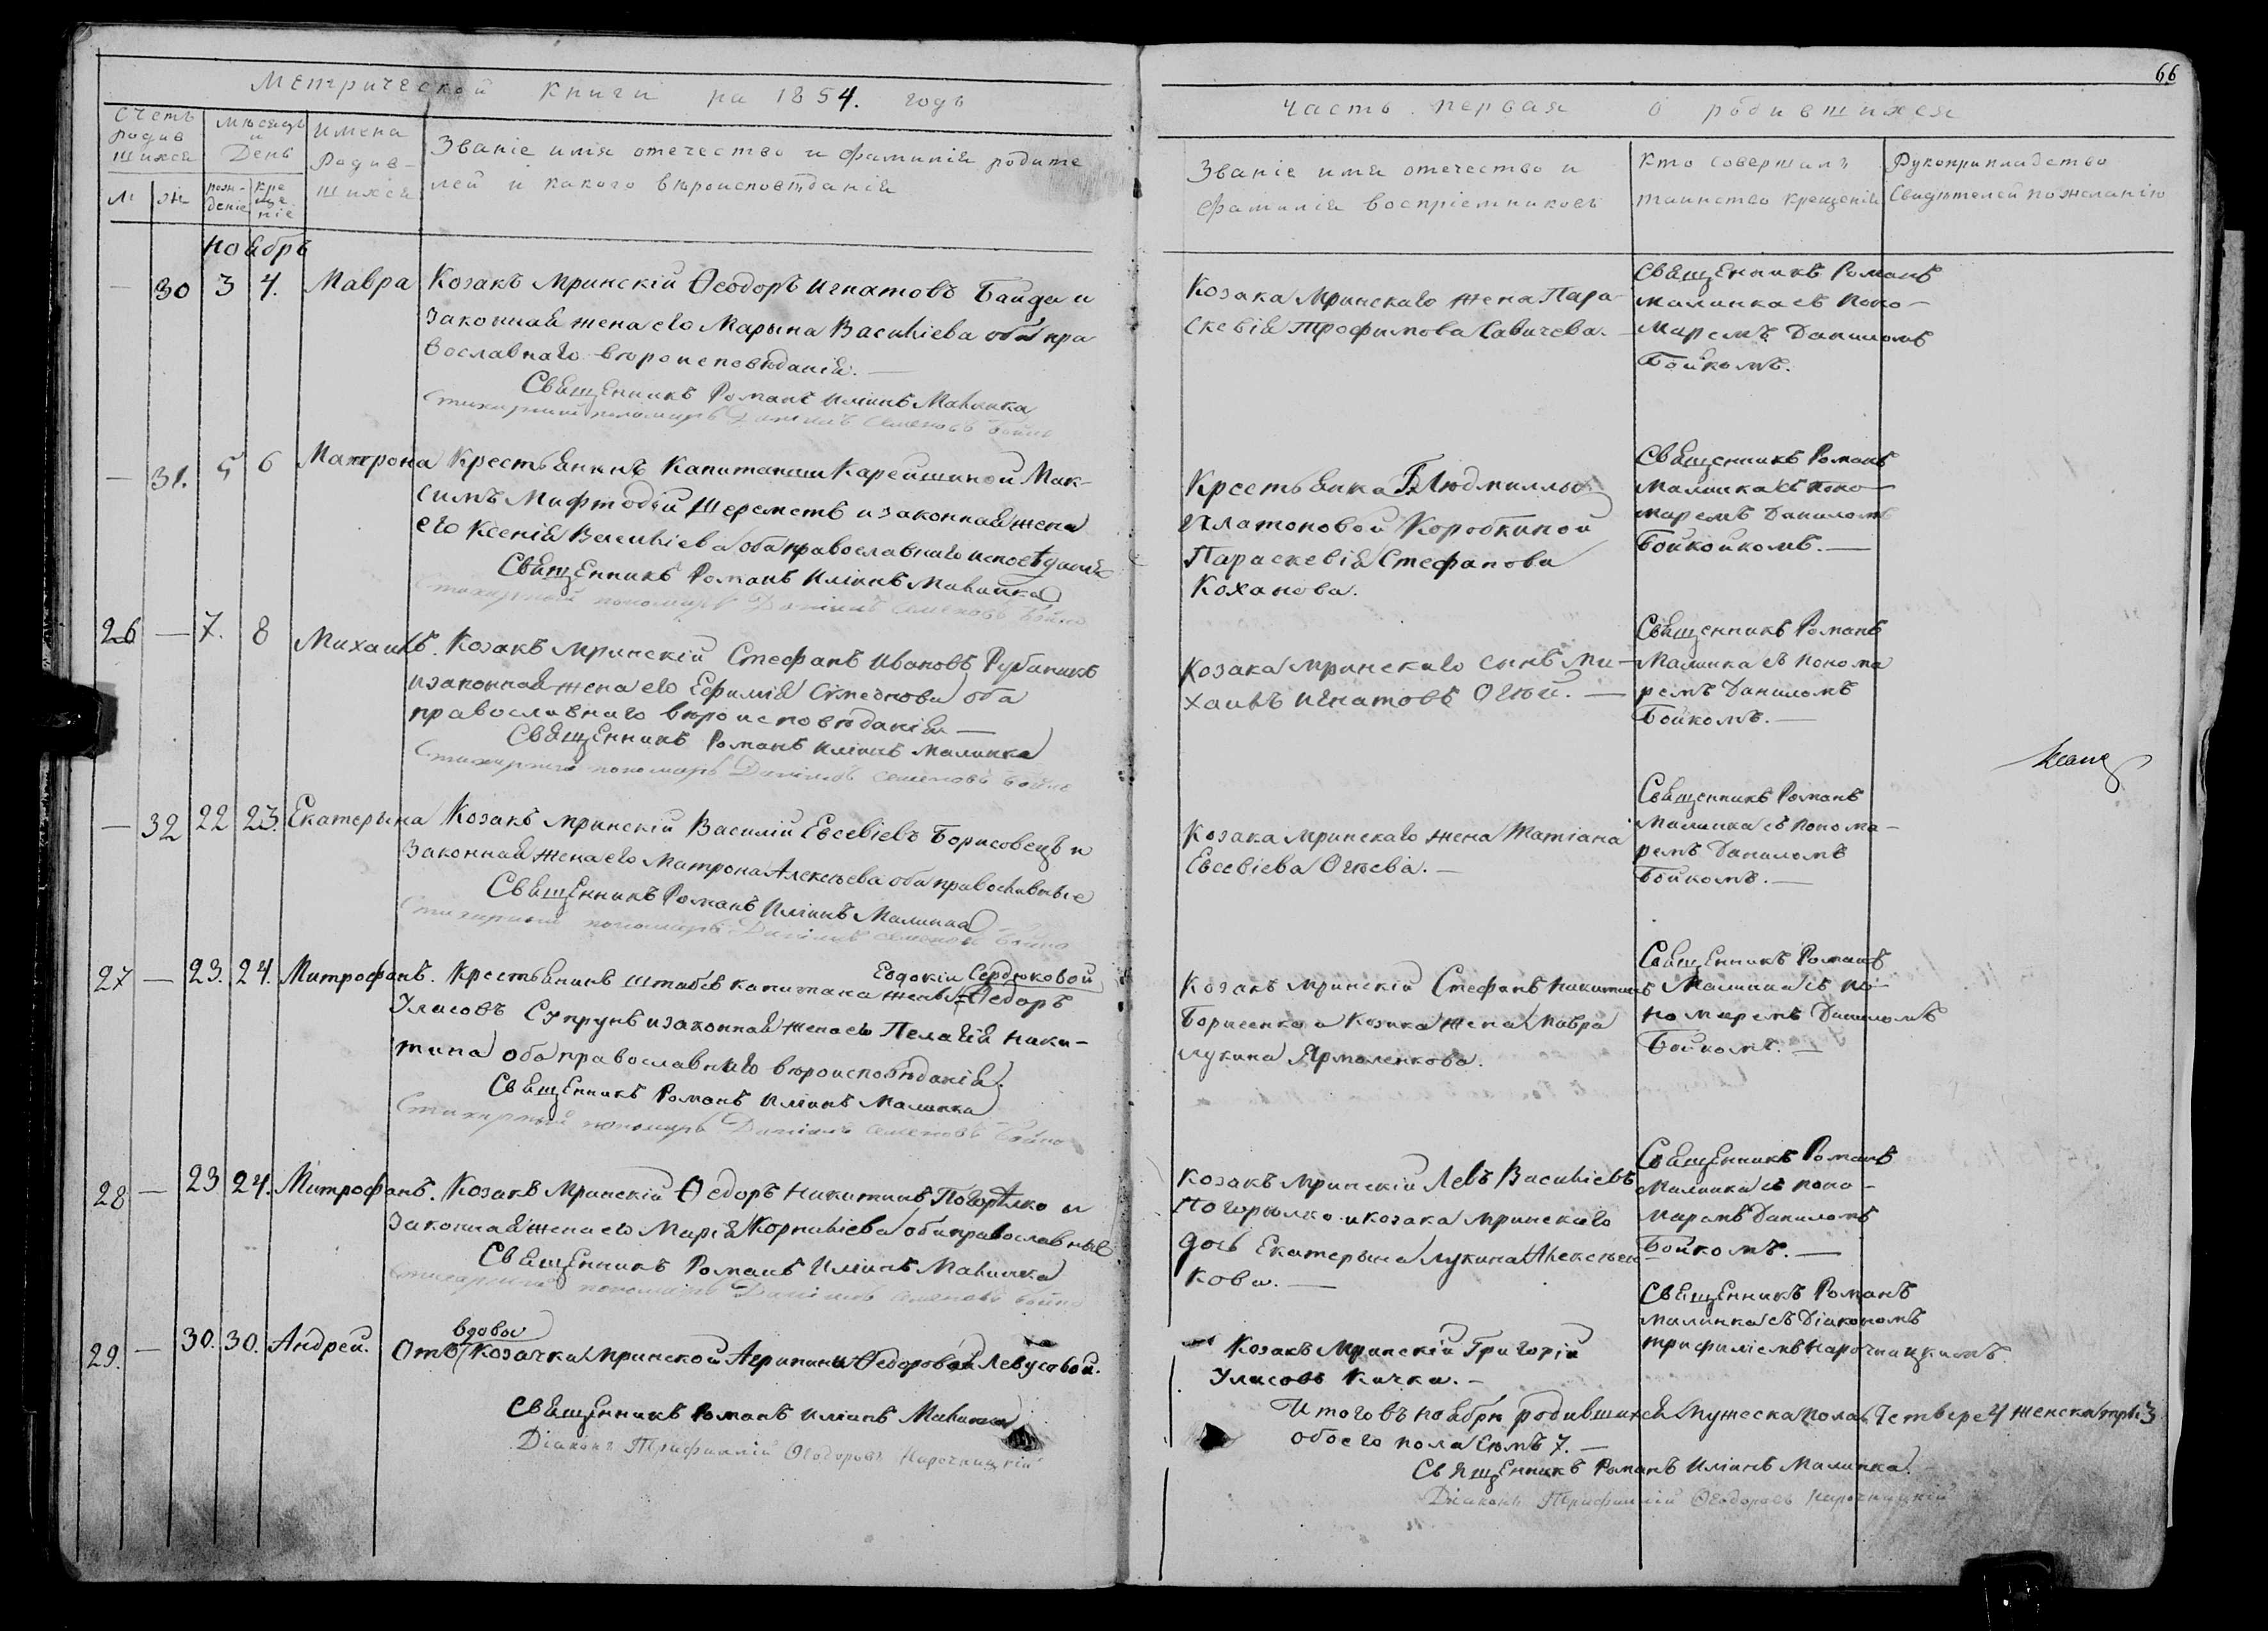 66
Метрической книги на 1854. годъ
часть первая о родившихся
Счетъ родившихся
м
ж
Мѣсяцъ и День
рождение
крещение
имена Родившихся
Званіе имя отечество и фамилія родите
лей и какого вѣроисповѣданія
Званіе имя отечество и
фамилія воспріемниковъ
кто совершалъ
таинство крещенія
Рукоприкладство
Свидѣтелей по желанію
ноябрь
— 30 3 4. Мавра Козакъ Мринскій Ѳеодоръ Игнатовъ Байда и
законная жена его Марына Василіева оба пра
вославнаго вѣроисповѣданія. —
Священникъ Романъ Иліинъ Малинка
Стихарный пономарь Даніилъ Семеновъ Бойко
Козака Мринскаго жена Пара-
скевія Трофимова Савичева. —
Священникъ Романъ
Малинка съ поно-
маремъ Даниломъ
Бойкомъ.
— 31. 5 6 Матрона Крестьянинъ Капитанши Карейшиной Мак-
симъ Мифтодій Шереметъ и законная жена
его Ксенія Василіева оба православнаго исповѣданія
Священникъ Романъ Иліинъ Малинка
Стихарный пономарь Даніилъ Семеновъ Бойко
Крестьянка Людмиллы
Платоновой Коробкиной
Параскевія Стефанова
Коханова.
Священникъ Романъ
Малинка съ поно-
маремъ Даниломъ
Бойкойкомъ. —
26 — 7. 8 Михаилъ. Козакъ Мринскій Стефанъ Ивановъ Рубаникъ
и законная жена его Ефимія Симеонова оба
православнаго вѣроисповѣданія —
Священникъ Романъ Иліинъ Малинка
Стихарный пономарь Даніилъ Семеновъ Бойко
Козака Мринскаго сынъ Ми-
хаилъ Игнатовъ Огѣй. —
Священникъ Романъ
Малинка съ понома
ремъ Даниломъ
Бойкомъ. —
— 32 22 23. Екатерына Козакъ Мринскій Василій Евсевіевъ Борисовецъ и
законная жена его Матрона Алексѣева оба православные
Священникъ Романъ Иліинъ Малинка
Стихарный пономарь Даніилъ Семеновъ Бойко
Козака Мринскаго жена Татіана
Евсевіева Огѣева. —
Священникъ Романъ
Малинка съ понома-
ремъ Даниломъ
Бойкомъ. —
27 — 23. 24. Митрофанъ. Крестьянинъ штабсъ капитана жены Евдокіи Сердюковой Ѳедоръ
Уласовъ Супрунъ и законная жена его Пелагія Ники-
тина оба православнаго вѣроисповѣданія.
Священникъ Романъ Иліинъ Малинка
Стихарный пономарь Даніилъ Семеновъ Бойко
Козакъ Мринскій Стефанъ Никитинъ
Борисенко и Козака жена Мавра
Лукина Ярмоленкова.
Священникъ Романъ
Малинка съ по-
номаремъ Даниломъ
Бойкомъ. —
28 — 23 24. Митрофанъ. Козакъ Мринскій Ѳедоръ Никитинъ Погорѣлко и
законная жена его Марія Корниліева оба православные
Священникъ Романъ Иліинъ Малинка
Стихарный пономарь Даніилъ Семеновъ Бойко
Козакъ Мринскій Левъ Василіевъ
Погорѣлко и козака Мринскаго
дочь Екатерына Лукина Алексѣен
кова. —
Священникъ Романъ
Малинка съ поно-
маремъ Даниломъ
Бойкомъ. —
29. — 30. 30. Андрей. Отъ вдовы Козачки Мринской Агрипины Ѳедоровой Левусовой.
Священникъ Романъ Иліинъ Малинка
Діаконъ Трифиллій Ѳеодоровъ Нарочницкій
Козакъ Мринскій Григорій
Уласовъ Качка. —
Священникъ Романъ
Малинка съ Діакономъ
Трифиліемъ Нарочницкимъ.
Итого въ ноябрѣ родившихся мужеска пола четвере 4 женска три 3
обоего пола семъ 7. —
Священникъ Романъ Иліинъ Малинка.
Діаконъ Трифиллій Ѳеодоровъ Нарочницкій